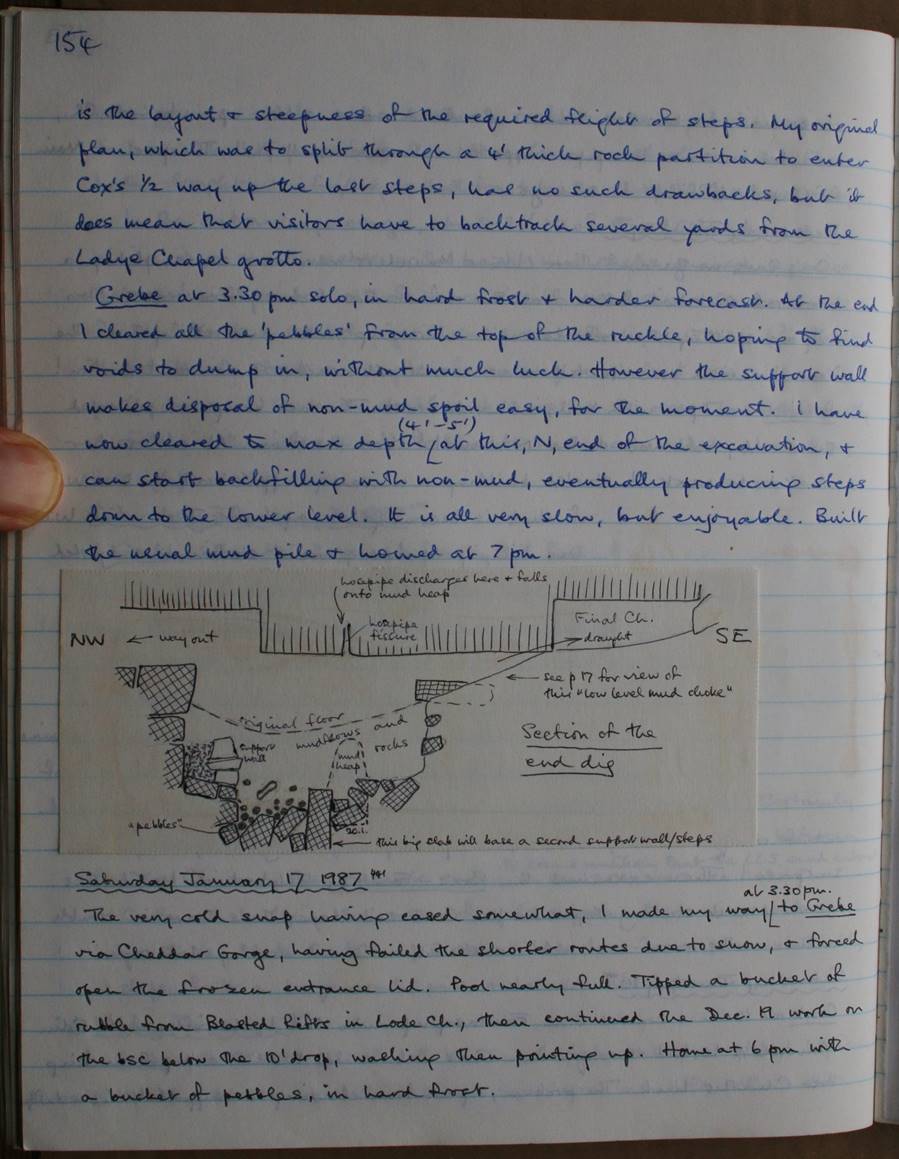 154
is the layout & steepness of the required flight of steps. My original
plan, which was to split through a 4' thick rock partition to enter
Cox's 1/2 way up the last steps, has no such drawbacks, but it
does mean that visitors have to backtrack several yards from the
Ladye Chapel grotto.
Grebe at 3.30 pm solo, in hard frost & harder forecast. At the end
I cleared all the 'pebbles' from the top of the ruckle, hoping to find
voids to dump in, without much luck. However the support wall
makes disposal of non-mud spoil easy, for the moment. I have
(4'-5')
now cleared to max depth at this, N, end of the excavation, &
can start backfilling with non-mud, eventually producing steps
down to the lower level. It is all very slow, but enjoyable. Built
the usual mud pile & homed at 7 pm.
hosepipe discharges here & falls
onto mud heap
hosepipe
fissure
Final Ch.
NW ← way out
draught
SE
← see p 17 for view of
this "low level mud choke"
original floor
mudflows and
rocks
support
wall
mud
heap
Section of the
end dig
"pebbles"
20.1.
this big slab will base a second support wall/steps
Saturday January 17 1987
at 3.30 pm.
The very cold snap having eased somewhat, I made my way to Grebe
via Cheddar Gorge, having failed the shorter routes due to snow, & forced
open the frozen entrance lid. Pool nearly full. Tipped a bucket of
rubble from Blasted Rifts in Lode Ch., then continued the Dec. 19 work on
the bsc below the 10' drop, washing then pointing up. Home at 6 pm with
a bucket of pebbles, in hard frost.